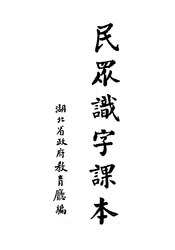 民眾識字課本
湖北省政府教育廳編